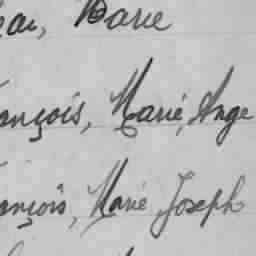 eau, Marie
ançois, Marie, Ange
ançois, Marie Joseph